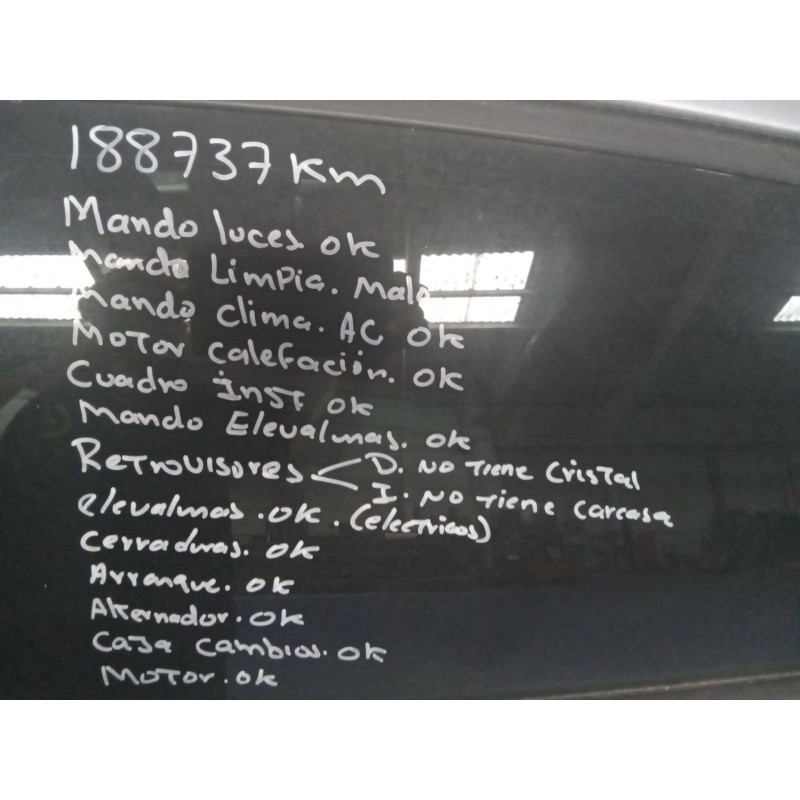 188737 Km
Mando luces ok
Mando Limpia. Malo
Mando clima. AC OK
Motor Calefación. OK
Cuadro Inst ok
Mando Elevalunas. ok
Retrovisores D. No Tiene Cristal
I. No Tiene Carcasa
elevalunas. ok. (electricos)
Cerraduras. ok
Arranque. ok
Alternador. ok
Caja Cambios. ok
Motor. ok